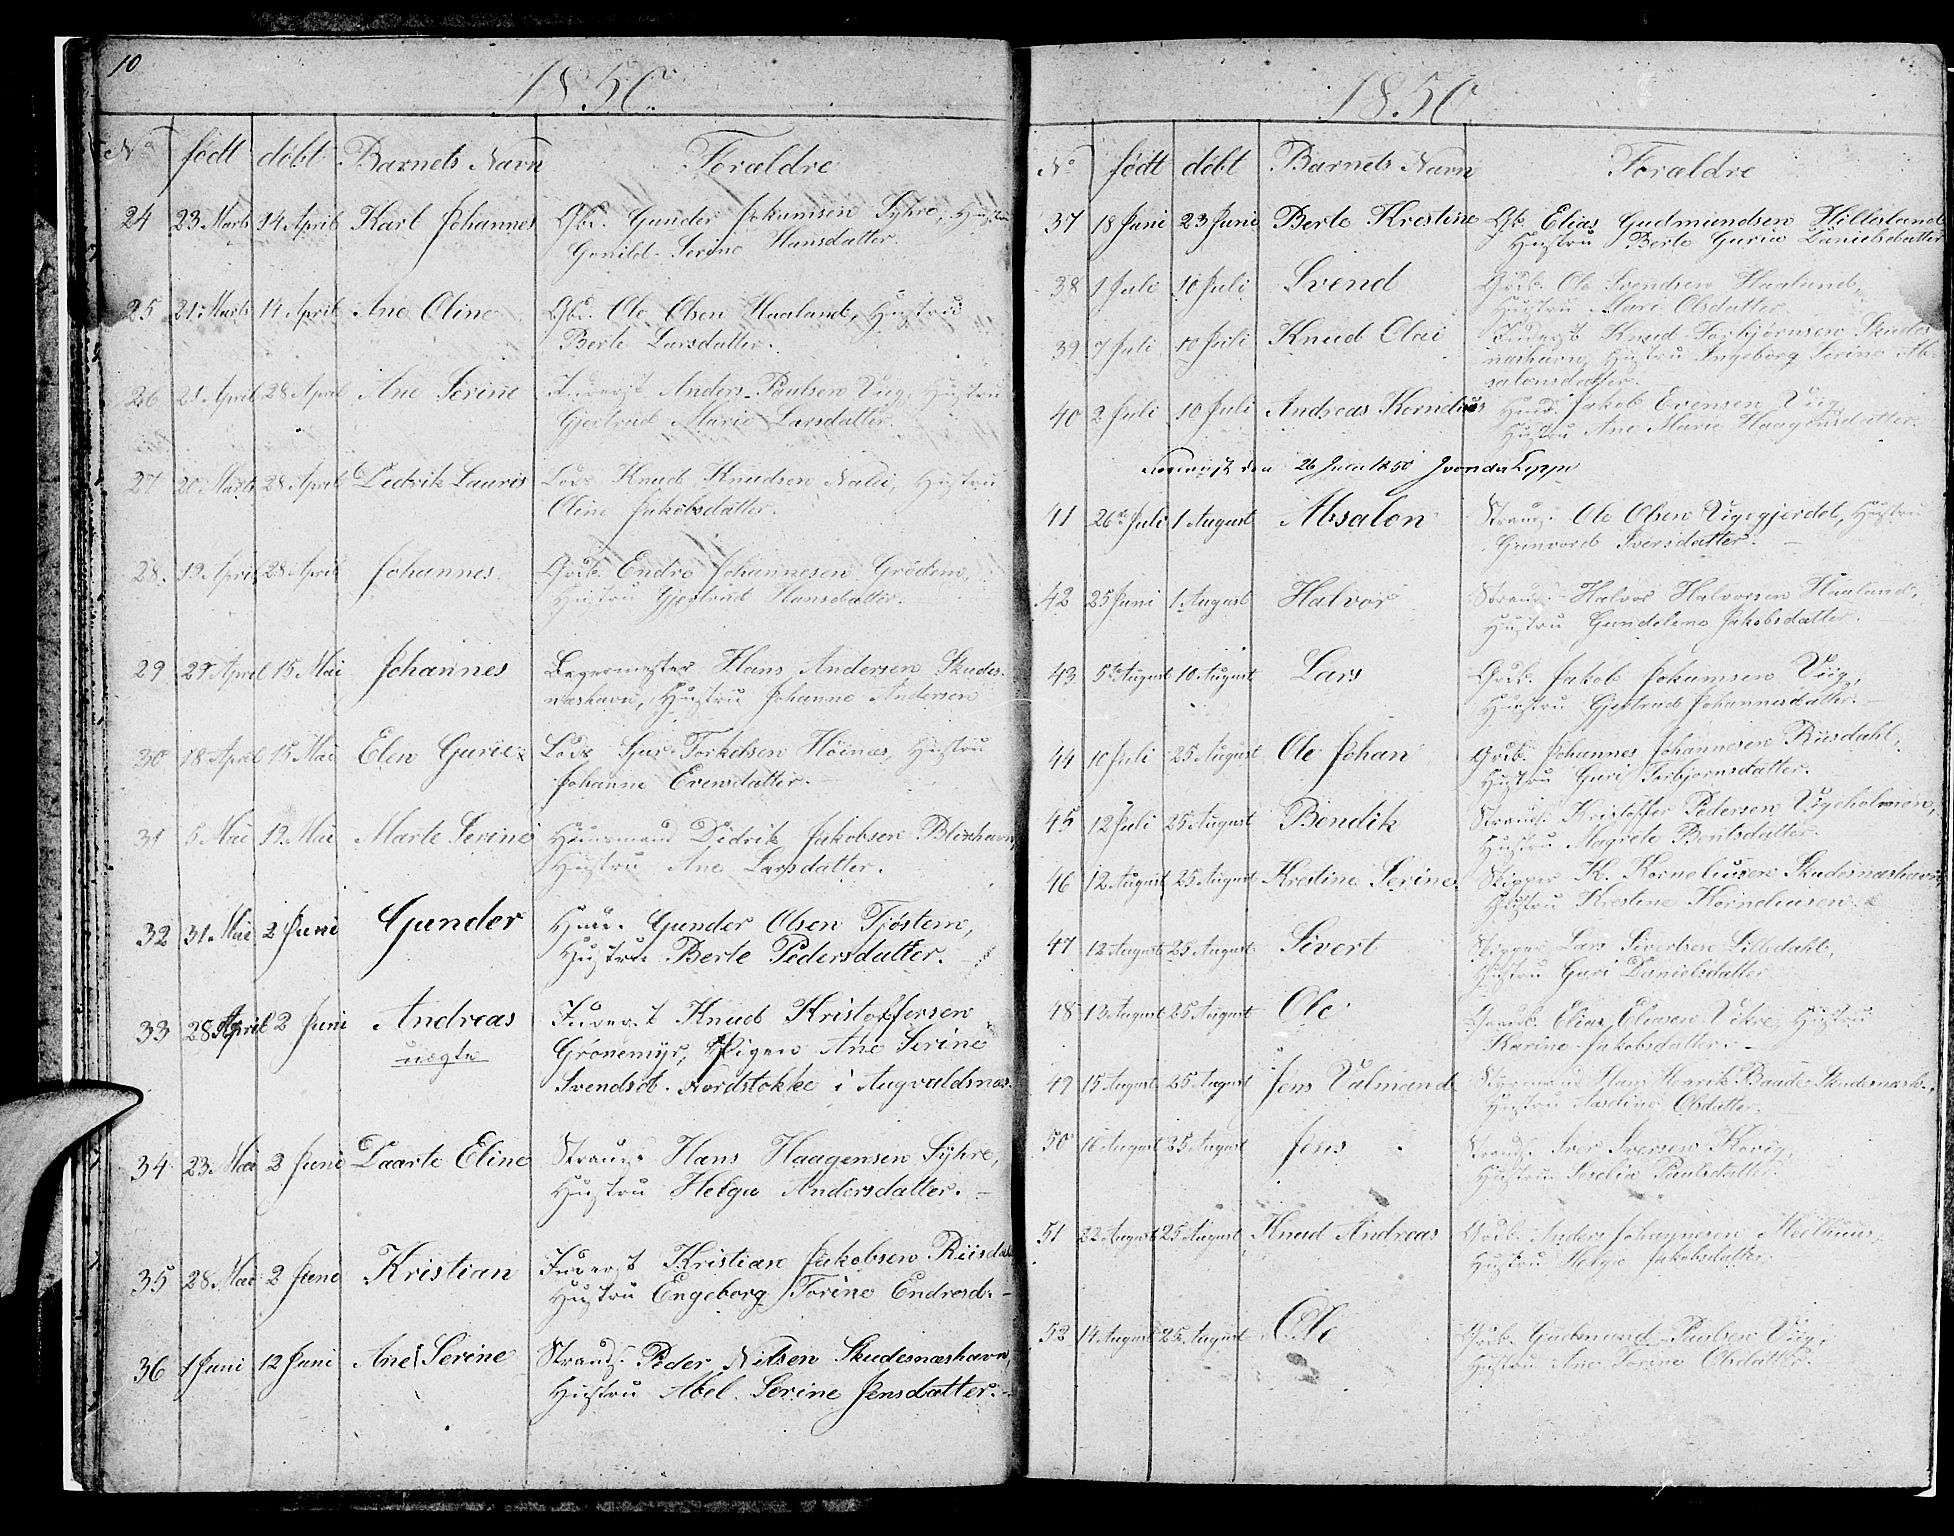 10
1850.
No født døbt Barnets Navn Forældre
24 23 Marts 14 April Karl Johannes Gbd. Gunder Johannsen Syhre, Hustru
Gunild Serine Hansdatter.
25 21 Marts 14 April Ane Oline Gbd. Ole Olsen Haaland, Hustru
Berte Larsdatter.
26 21 April 28 April Ane Serine Inderst Anders Paulsen Viig, Hustru
Gjertrud Marie Larsdatter.
27 20 Marts 28 April Didrik Lauris Lods Knud Knudsen Hustru
Oline Jakobsdatter.
28. 19 April 28 April Johannes. Grdb. Endre Johannesen Grødem,
Hustru Gjertrud Hansdatter.
29 29 April 15 Mai Johannes Bagermester Hans Andersen Skudes-
næshavn, Hustru Johanne Andersen
30 18 April 15 Mai Elen Gurie Lods Sjur Torkelsen Høinæs, Hustru
Johanne Evensdatter.
31 5 Mai 12 Mai Marte Serine Huusmand Didrik Jakobsen Blixhavn,
Hustru Ane Larsdatter.
32 31 Mai 2 Juni Gunder Huus. Gunder Olsen Tjøstem,
Hustru Berte Pedersdatter.
33 28 April 2 Juni Andreas Inderst Knud Kristoffersen
uægte Grønemyr, Pigen Ane Serine
Svendsd. Nordstokke i Augvaldsnæs.
34 23 Mai 2 Juni Daarte Eline Strands. Hans Haagensen Syhre,
Hustru Helga Andersdatter.
35 28 Mai 2 Juni Kristian Inderst Kristian Jakobsen Riisdal
Hustru Engeborg Torine Endresd.
36 1 Juni 12 Juni Ane Serine Strands. Peder Nilsen Skudesnæshavn,
Hustru Abel Serine Jensdatter.
1850
No født døbt Barnets Navn Forældre
37 18 Juni 23 Juni Berte Krestine Gb. Elias Gudmundsen Hillesland
Hustru Berte Guria Danielsdatter
38 1 Juli 10 Juli Svend Grdb. Ole Svendsen Haaland,
Hustru Mari Olsdatter.
39 7 Juli 10 Juli Knud Olai Inderst Knud Torbjørnsen Skudes
næshavn, Hustru Ingeborg Serine Ab-
salonsdatter.
40 2 Juli 10 Juli Andreas Kornelius Huus. Jakob Evensen Viig
Hustru Ane Marie Haagensdatter.
den 26 Juli 1850
41 26de Juli 1 August Absalon Strands. Ole Olsen Vigegjerdet, Hustru
Gunvord Iversdatter.
42 25 Juni 1 August Halvor Strands. Halvor Halvorsen Haaland,
Hustru Gundeline Jakobsdatter.
43 5te August 10 August Lars Grdb. Jakob Johannsen Viig,
Hustru Gjertrud Johannesdatter.
44 10 Juli 25 August Ole Johan Grdb. Johannes Johannesen Riisdahl,
Hustru Guri Torbjørnsdatter.
45 12 Juli 25 August Bendik Strands. Kristoffer Pedersen Vigeholmen,
Hustru Magrete Bentsdatter.
46 12 August 25 August Krestine Serine Skipper K. Korneliusen Skudesnæshavn
Hustru Krestine Korneliusen.
47 12 August 25 August Sivert Skipper Lars Sivertsen Lilledahl,
Hustru Guri Danielsdatter
48 12 August 25 August Ole Grdb. Elias Eliasen Vikre, Hustru
Karine Jakobsdatter.
49 15 August 25 August Jens Valmand Styrmand Hans Henrik Baade Skudesnæsh.,
Hustru Olsdatter.
50 16 August 25 August Jens Strands. Iver Iversen Kovig,
Hustru Seselia Paulsdatter.
51 22 August 25 August Knud Andreas Grdb. Anders Johannesen Melhuus,
Hustru Helge Jakobsdatter.
52 14 August 25 August Ole Grdb. Gudmund Paulsen Viig,
Hustru Ane Torine Olsdatter.